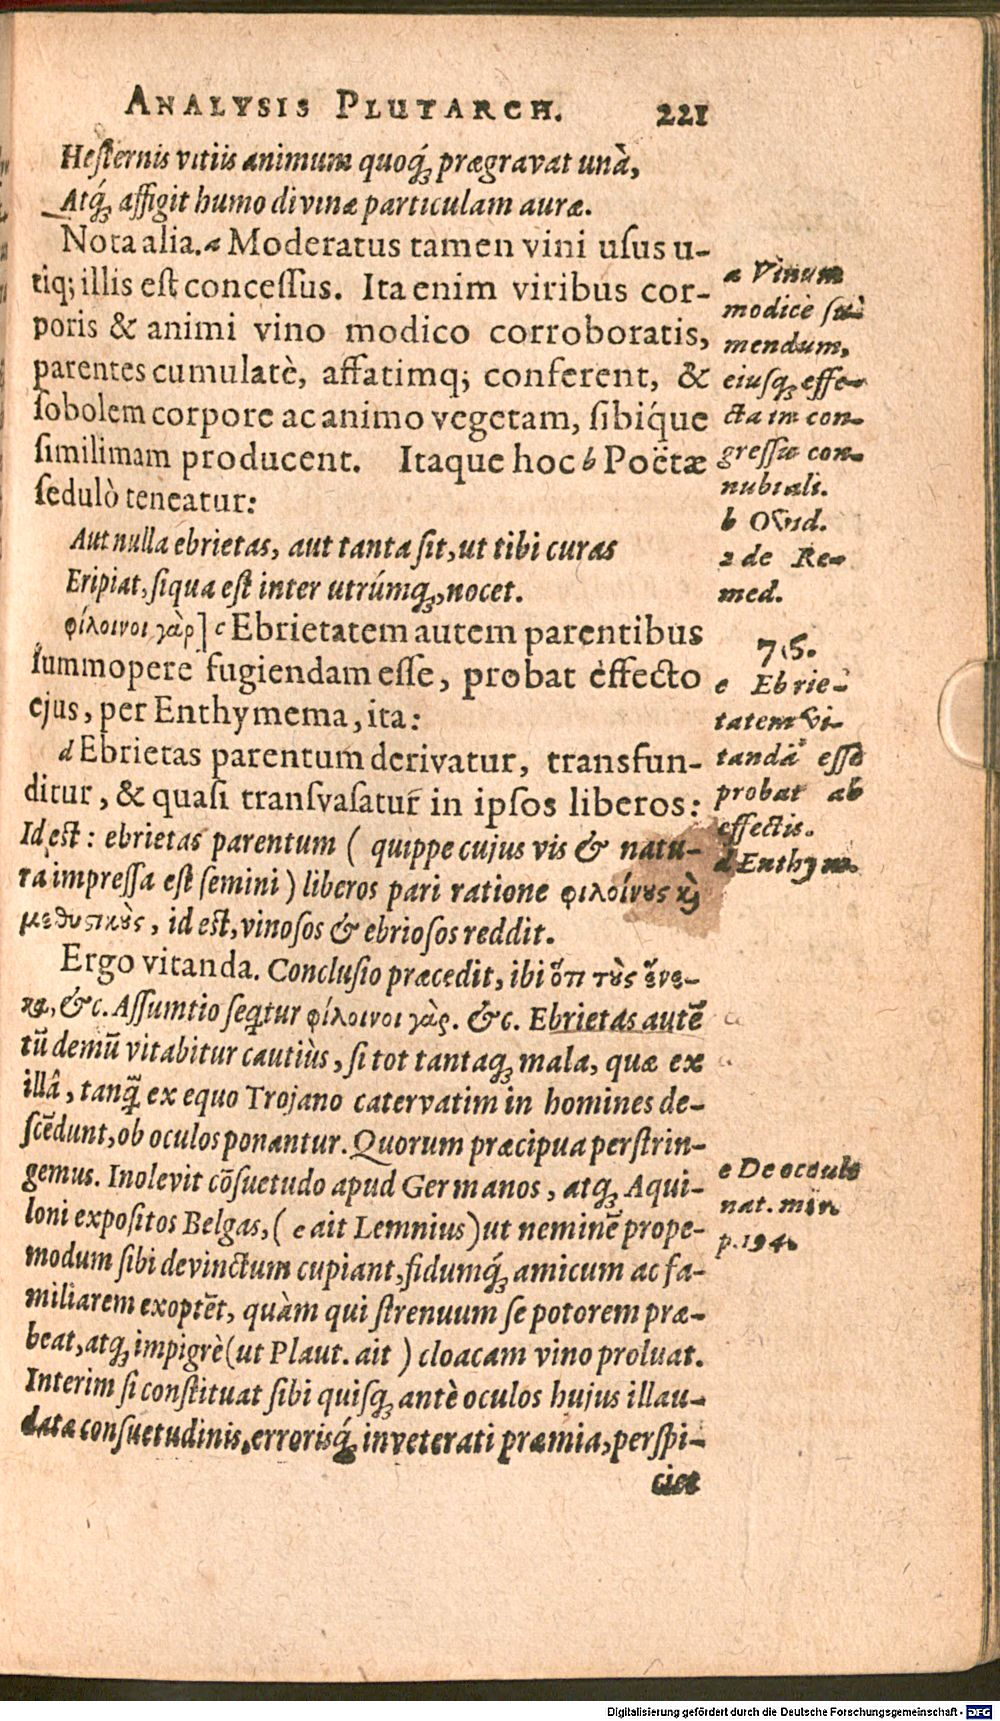 ANALYSIS PLUTARCH. 221
Hesternis vitiis animum quoq́ꝫ prægravat unà,
Atq́ꝫ affigit humo divinæ particulam auræ.
Nota alia. a Moderatus tamen vini usus u-
tiq; illis est concessus. Ita enim viribus cor-
poris & animi vino modico corroboratis,
parentes cumulatè, affatimq; conferent, &
sobolem corpore ac animo vegetam, sibíque
similimam producent. Itaque hoc b Poëtæ
sedulò teneatur:
Aut nulla ebrietas, aut tanta sit, ut tibi curas
Eripiat, siqua est inter utrúmqꝫ, nocet.
φίλοινοι γὰρ] c Ebrietatem autem parentibus
summopere fugiendam esse, probat effecto
ejus, per Enthymema, ita:
d Ebrietas parentum derivatur, transfun-
ditur, & quasi transvasatur in ipsos liberos:
Id est: ebrietas parentum ( quippe cujus vis & natu-
ra impressa est semini ) liberos pari ratione φιλοίνους καὶ
μεθυστικοὺς, id est, vinosos & ebriosos reddit.
Ergo vitanda. Conclusio præcedit, ibi ὅτι τοὺς ἕνε-
κα, &c. Assumtio seqͥtur φίλοινοι γὰρ. &c. Ebrietas autē
tū demū vitabitur cautiùs, si tot tantaqꝫ mala, quæ ex
illâ, tanq̃ ex equo Trojano catervatim in homines de-
scēdunt, ob oculos ponantur. Quorum præcipua perstrin-
gemus. Inolevit cōsuetudo apud Germanos, atqꝫ Aqui-
loni expositos Belgas, ( e ait Lemnius) ut neminē prope-
modum sibi devinctum cupiant, fidumq́ꝫ amicum ac fa-
miliarem exoptēt, quàm qui strenuum se potorem præ-
beat, atqꝫ impigrè (ut Plaut. ait ) cloacam vino proluat.
Interim si constituat sibi quisqꝫ antè oculos hujus illau-
datæ consuetudinis, errorisq́ꝫ inveterati præmia, perspi-
ciet
a Vinum
modicè su-
mendum,
eiusqꝫ effe-
cta in con-
gressu con-
nubiali.
b Ovid.
2 de Re-
med.
75.
c Ebrie-
tatem vi-
tandā esse
probat ab
effectis.
d Enthym.
e De occult.
nat. mir.
p. 194.
Digitalisierung gefördert durch die Deutsche Forschungsgemeinschaft - DFG